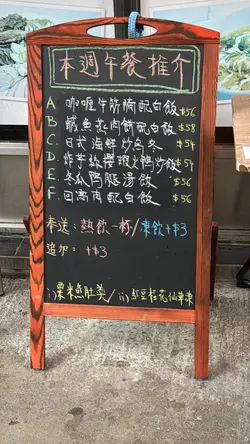 本週午餐推介
A. 咖喱牛筋腩配白飯 $56
B. 鹹魚蒸肉餅配白飯 $58
C. 日式海鮮炒烏冬 $54
D. 炸菜絲櫻蝦火鴨炒飯 $54
E. 冬瓜鴨腿湯飯 $56
F. 回鍋肉配白飯 $56
奉送：熱飲一杯/凍飲+$3
追加： +$3
i) 粟米魚肚羹 / ii) 紅豆桂花仙草凍